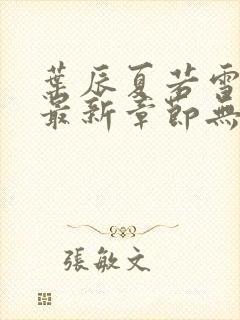 葉辰夏若雪
最新章節無
張敏文